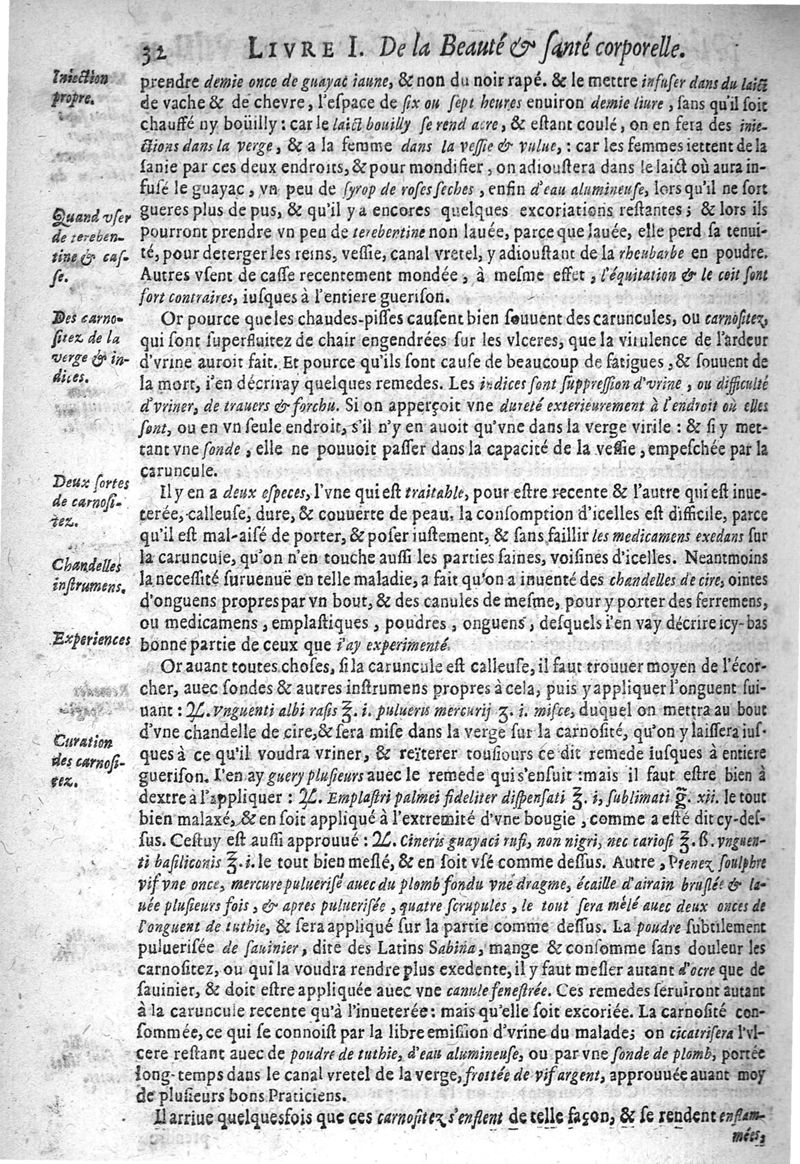 32 LIVRE I. De la Beauté & santé corporelle.
Iniection
propre.
prendre demie once de guayac iaune, & non du noir rapé. & le mettre infuser dans du laict
de vache & de chevre, l'espace de six ou sept heures enuiron demie liure, sans qu'il soit
chauffé ny boüilly: car le laict bouilly se rend acre, & estant coulé, on en fera des inie-
ctions dans la verge, & a la femme dans la vessie & vulue, : car les femmes iettent de la
sanie par ces deux endroits, & pour mondifier, on adioustera dans le laict où aura in-
fusé le guayac, vn peu de syrop de roses seches, enfin d'eau alumineuse, lors qu'il ne sort
Quand vser
de tereben-
tine & cas-
se.
gueres plus de pus, & qu'il y a encores quelques excoriations restantes; & lors ils
pourront prendre vn peu de terebentine non lauée, parce que lauée, elle perd sa tenui-
té, pour deterger les reins, vessie, canal vretel, y adioustant de la rheubarbe en poudre.
Autres vsent de casse recentement mondée, à mesme effet, l'équitation & le coit sont
fort contraires, iusques à l'entiere guerison.
Des carno-
sitez de la
verge & in-
dices.
Or pource que les chaudes-pisses causent bien souuent des caruncules, ou carnositez,
qui sont superfluitez de chair engendrées sur les vlceres, que la virulence de l'ardeur
d'vrine auroit fait. Et pource qu'ils sont cause de beaucoup de fatigues, & souuent de
la mort, i'en décriray quelques remedes. Les indices sont suppression d'vrine, ou difficulté
d'vriner, de trauers & forchu. Si on apperçoit vne dureté exterieurement à l'endroit où elles
sont, ou en vn seule endroit, s'il n'y en auoit qu'vne dans la verge virile : & si y met-
tant vne sonde, elle ne pouuoit passer dans la capacité de la vessie, empeschée par la
caruncule.
Deux sortes
de carnosi-
tez.
Il y en a deux especes, l'vne qui est traitable, pour estre recente & l'autre qui est inue-
terée, calleuse, dure, & couuerte de peau. la consomption d'icelles est difficile, parce
qu'il est mal-aisé de porter, & poser iustement, & sans faillir les medicamens exedans sur
Chandelles
instrumens.
la caruncule, qu'on n'en touche aussi les parties saines, voisines d'icelles. Neantmoins
la necessité suruenuë en telle maladie, a fait qu'on a inuenté des chandelles de cire, ointes
d'onguens propres par vn bout, & des canules de mesme, pour y porter des ferremens,
ou medicamens, emplastiques, poudres, onguens, desquels i'en vay décrire icy-bas
Experiences
bonne partie de ceux que i'ay experimenté.
Or auant toutes choses, si la caruncule est calleuse, il faut trouuer moyen de l'écor-
cher, auec sondes & autres instrumens propres à cela, puis y appliquer l'onguent sui-
uant : ℞. Vnguenti albi rasis ℥. i. pulueris mercurij ʒ. i. misce, duquel on mettra au bout
Curation
des carnosi-
tez.
d'vne chandelle de cire, & sera mise dans la verge sur la carnosité, qu'on y laissera ius-
ques à ce qu'il voudra vriner, & reïterer tousiours ce dit remede iusques à entiere
guerison. I'en ay guery plusieurs auec le remede qui s'ensuit : mais il faut estre bien à
dextre à l'appliquer : ℞. Emplastri palmei fideliter dispensati ℥. i, sublimati g̃. xii. le tout
bien malaxé, & en soit appliqué à l'extremité d'vne bougie, comme a esté dit cy-des-
sus. Cestuy est aussi approuué : ℞. Cineris guayaci rufi, non nigri, nec cariosi ʒ. ß. vnguen-
ti basiliconis ʒ. i. le tout bien meslé, & en soit vsé comme dessus. Autre, Prenez soulphre
vif vne once, mercure puluerisé auec du plomb fondu vne dragme, écaille d'airain bruslée & la-
uée plusieurs fois, & apres puluerisée, quatre scrupules, le tout sera mêlé auec deux onces de
l'onguent de tuthie, & sera appliqué sur la partie comme dessus. La poudre subtilement
puluerisée de sauinier, dite des Latins Sabina, mange & consomme sans douleur les
carnositez, ou qui la voudra rendre plus exedente, il y faut mesler autant d'ocre que de
sauinier, & doit estre appliquée auec vne canule fenestrée. Ces remedes seruiront autant
à la caruncule recente qu'à l'inueterée : mais qu'elle soit excoriée. La carnosité con-
sommée, ce qui se connoist par la libre emission d'vrine du malade; on cicatrisera l'vl-
cere restant auec de poudre de tuthie, d'eau alumineuse, ou par vne sonde de plomb, portée
long-temps dans le canal vretel de la verge, frottée de vif argent, approuuée auant moy
de plusieurs bons Praticiens.
Il arriue quelquesfois que ces carnositez s'enflent de telle façon, & se rendent enflam-
mées,